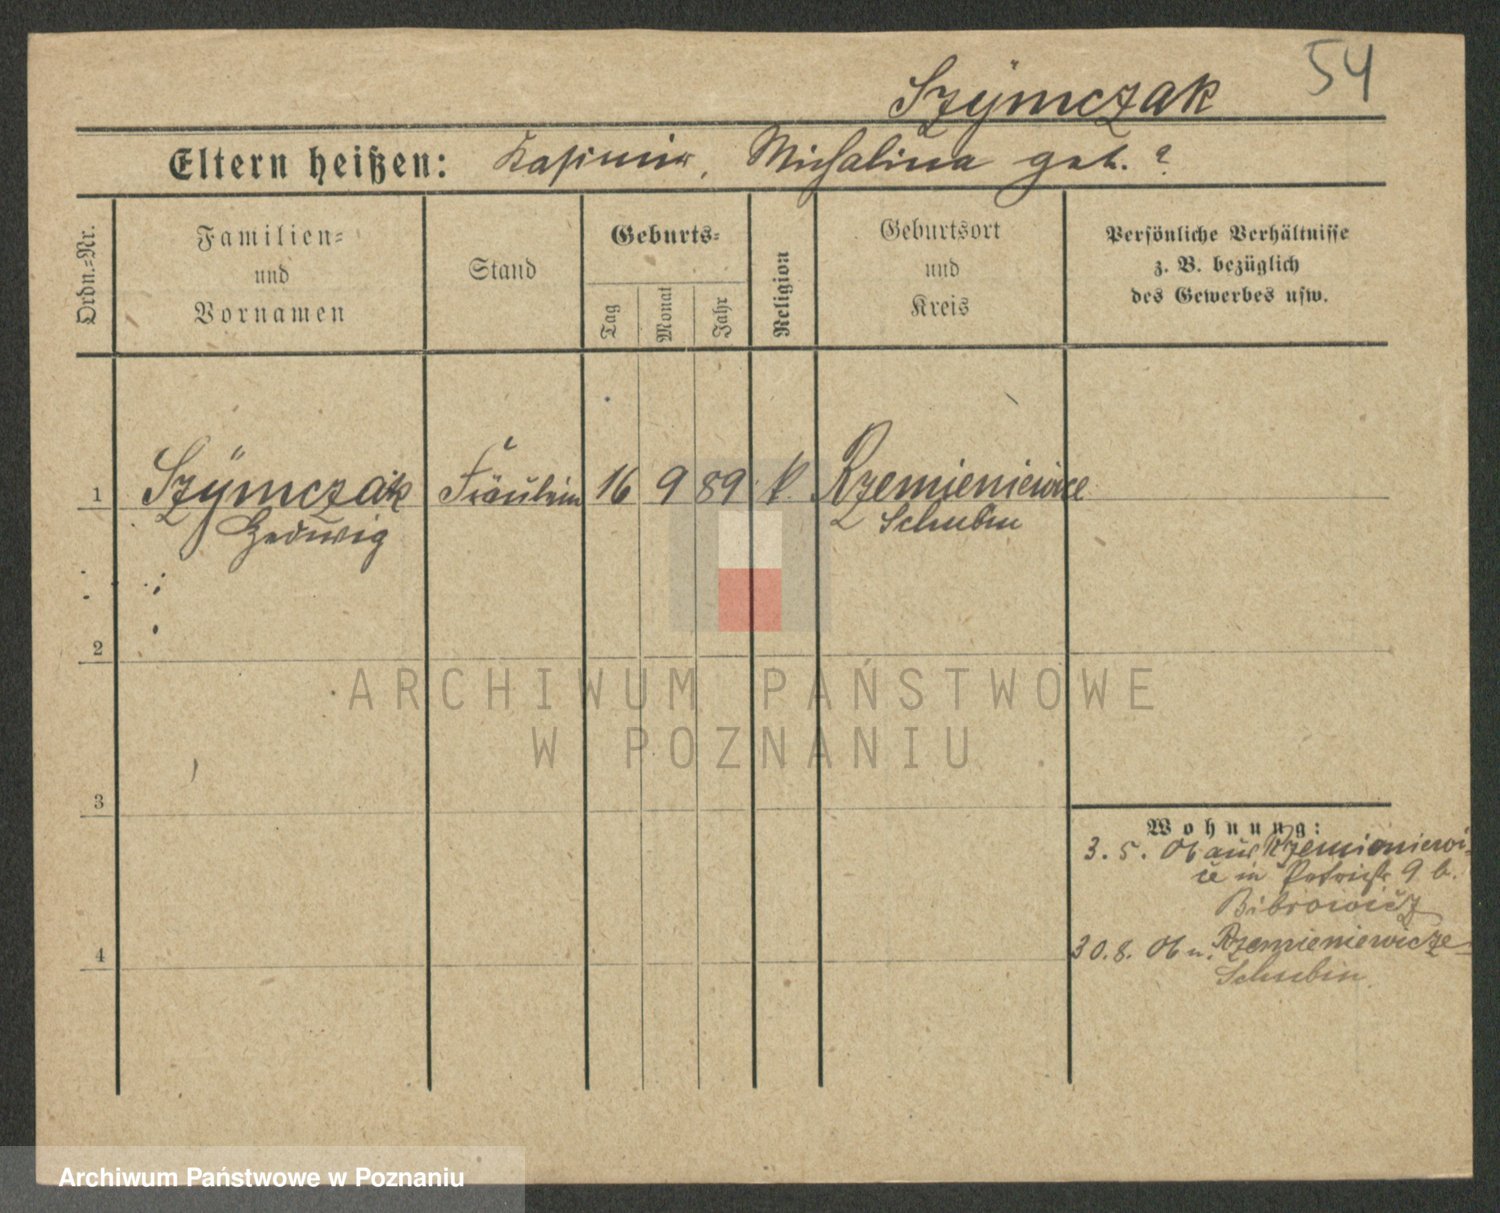 54
Szÿmczak
Eltern heißen: Kasimir, Michalina geb. ?
Ordn.-Nr.
Familien-
und
Vornamen
Stand
Geburts-
Tag
Monat
Jahr
Religion
Geburtsort
und
Kreis
Persönliche Verhältnisse
z. B. bezüglich
des Gewerbes usw.
1 Szÿmczak Fräulein 16 9 89 k. Rzemieniewice
Hedwig Schubin
2
3
4
Wohnung:
3. 5. 06 aus Rzemieniewi-
ce in Patristr 9 b.
Bibrowicz
30. 8. 06 n. Rzemieniewicze
Schubin
ARCHIWUM PAŃSTWOWE
W POZNANIU
Archiwum Państwowe w Poznaniu